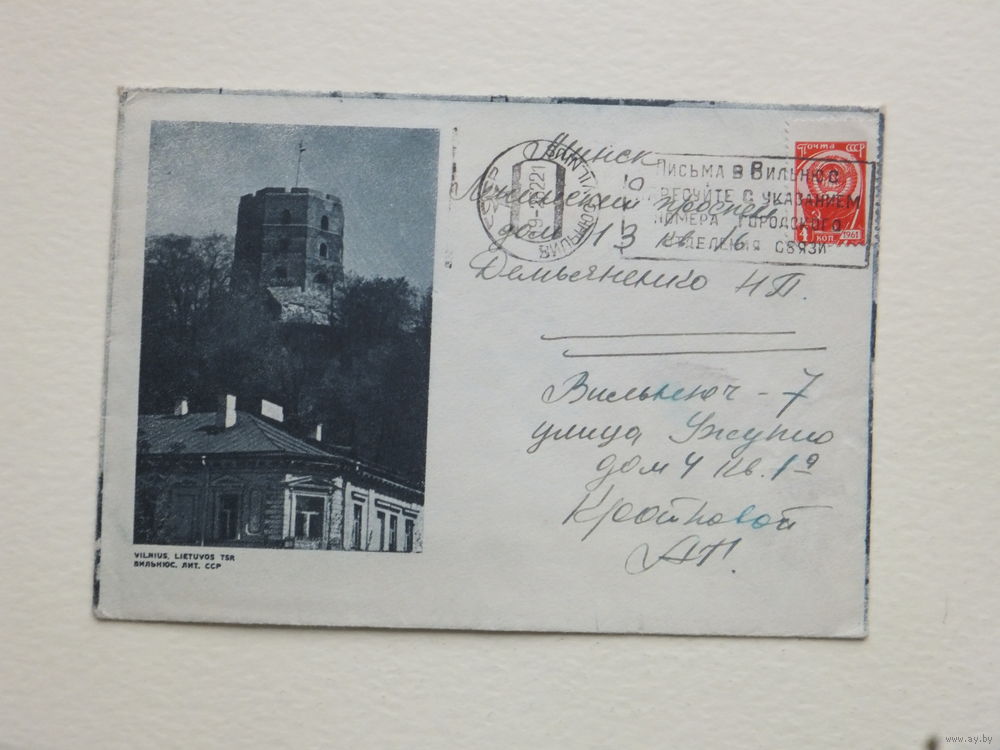 VILNIUS, LIETUVOS TSR
ВИЛЬНЮС, ЛИТ. ССР
ВИЛЬНЮС
ПИСЬМА В ВИЛЬНЮС
АДРЕСУЙТЕ С УКАЗАНИЕМ
НОМЕРА ГОРОДСКОГО
ОТДЕЛЕНИЯ СВЯЗИ
ПОЧТА СССР
4 КОП 1961
Минск
Ленинский
дом 113 кв 16
Демьяненко Н П.
Вильнюс - 7
улица Ужупио
дом 4 кв. 1а
Кройтовой
А П.
www.ay.by